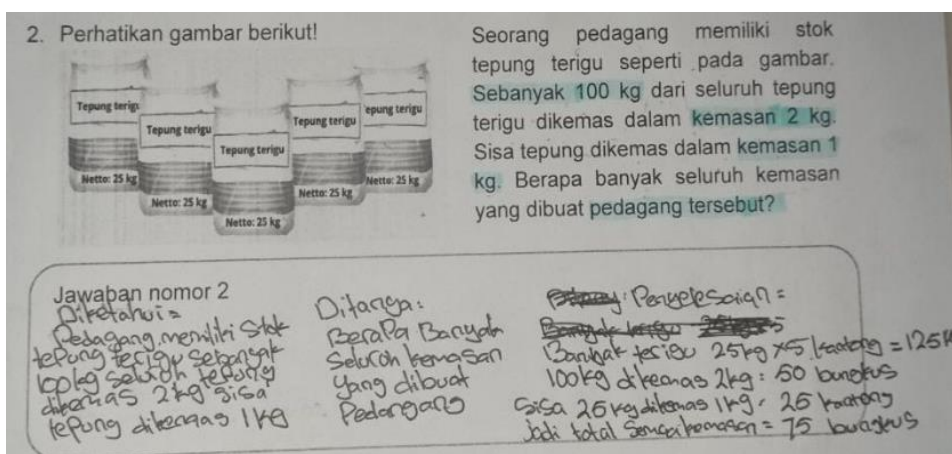 2. Perhatikan gambar berikut!
Tepung terigu
Tepung terigu
Tepung terigu
Tepung terigu
epung terigu
Netto: 25 kg
Netto: 25 kg
Netto: 25 kg
Netto: 25 kg
Netto: 25 kg
Seorang pedagang memiliki stok
tepung terigu seperti pada gambar.
Sebanyak 100 kg dari seluruh tepung
terigu dikemas dalam kemasan 2 kg.
Sisa tepung dikemas dalam kemasan 1
kg. Berapa banyak seluruh kemasan
yang dibuat pedagang tersebut?
Jawaban nomor 2
Diketahui =
Pedagang memiliki Stok
tepung terigu sebanyak
100kg seluruh tepung
dikemas 2kg sisa
tepung dikemas 1kg
Ditanya:
Berapa Banyak
Seluruh kemasan
yang dibuat
Pedangang
Penyelesaian =
Banyak terigu 25kg x5 kantong = 125k
100kg dikemas 2kg : 50 bungkus
Sisa 25kg dikemas 1kg: 25 kantong
Jadi total Semua kemasan = 75 bungkus